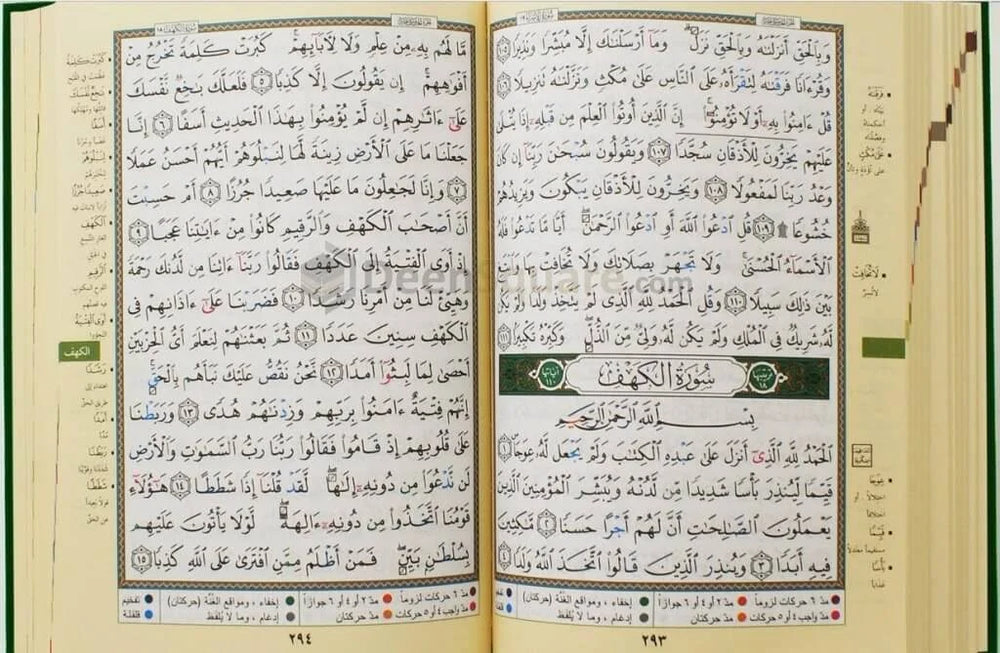 وَبِالْحَقِّ أَنزَلْنَاهُ وَبِالْحَقِّ نَزَلَ وَمَا أَرْسَلْنَاكَ إِلَّا مُبَشِّرًا وَنَذِيرًا ١٠٥
وَقُرْءَانًا فَرَقْنَاهُ لِتَقْرَأَهُ عَلَى النَّاسِ عَلَى مُكْثٍ وَنَزَّلْنَاهُ تَنزِيلًا ١٠٦
قُلْ ءَامِنُوا بِهِ أَوْ لَا تُؤْمِنُوا إِنَّ الَّذِينَ أُوتُوا الْعِلْمَ مِن قَبْلِهِ إِذَا يُتْلَى
عَلَيْهِمْ يَخِرُّونَ لِلْأَذْقَانِ سُجَّدًا ١٠٧ وَيَقُولُونَ سُبْحَانَ رَبِّنَا إِن كَانَ
وَعْدُ رَبِّنَا لَمَفْعُولًا ١٠٨ وَيَخِرُّونَ لِلْأَذْقَانِ يَبْكُونَ وَيَزِيدُهُمْ
خُشُوعًا ١٠٩ قُلِ ادْعُوا اللَّهَ أَوِ ادْعُوا الرَّحْمَنَ أَيًّا مَا تَدْعُوا فَلَهُ
الْأَسْمَاءُ الْحُسْنَى وَلَا تَجْهَرْ بِصَلَاتِكَ وَلَا تُخَافِتْ بِهَا وَابْتَغِ
بَيْنَ ذَلِكَ سَبِيلًا ١١٠ وَقُلِ الْحَمْدُ لِلَّهِ الَّذِي لَمْ يَتَّخِذْ وَلَدًا وَلَمْ يَكُن
لَّهُ شَرِيكٌ فِي الْمُلْكِ وَلَمْ يَكُن لَّهُ وَلِيٌّ مِّنَ الذُّلِّ وَكَبِّرْهُ تَكْبِيرًا ١١١
ترتيبها ١٨ سُورَةُ الْكَهْفِ آياتها ١١٠
بِسْمِ اللَّهِ الرَّحْمَنِ الرَّحِيمِ
الْحَمْدُ لِلَّهِ الَّذِي أَنزَلَ عَلَى عَبْدِهِ الْكِتَابَ وَلَمْ يَجْعَل لَّهُ عِوَجًا ١
قَيِّمًا لِّيُنذِرَ بَأْسًا شَدِيدًا مِّن لَّدُنْهُ وَيُبَشِّرَ الْمُؤْمِنِينَ الَّذِينَ
يَعْمَلُونَ الصَّالِحَاتِ أَنَّ لَهُمْ أَجْرًا حَسَنًا ٢ مَّاكِثِينَ
فِيهِ أَبَدًا ٣ وَيُنذِرَ الَّذِينَ قَالُوا اتَّخَذَ اللَّهُ وَلَدًا ٤
مدّ ٦ حركات لزوماً مدّ ٢ أو ٤ أو ٦ جوازاً إخفاء، ومواقع الغُنَّة (حركتان)
مدّ واجب ٤ أو ٥ حركات مدّ حركتان إدغام، وما لا يُلفَظ
٢٩٣
سُورَةُ الْكَهْفِ ١٨
مَّا لَهُم بِهِ مِنْ عِلْمٍ وَلَا لِآبَائِهِمْ كَبُرَتْ كَلِمَةً تَخْرُجُ مِنْ
أَفْوَاهِهِمْ إِن يَقُولُونَ إِلَّا كَذِبًا ٥ فَلَعَلَّكَ بَاخِعٌ نَّفْسَكَ
عَلَى ءَاثَارِهِمْ إِن لَّمْ يُؤْمِنُوا بِهَذَا الْحَدِيثِ أَسَفًا ٦ إِنَّا
جَعَلْنَا مَا عَلَى الْأَرْضِ زِينَةً لَّهَا لِنَبْلُوَهُمْ أَيُّهُمْ أَحْسَنُ عَمَلًا
٧ وَإِنَّا لَجَاعِلُونَ مَا عَلَيْهَا صَعِيدًا جُرُزًا ٨ أَمْ حَسِبْتَ
أَنَّ أَصْحَابَ الْكَهْفِ وَالرَّقِيمِ كَانُوا مِنْ ءَايَاتِنَا عَجَبًا ٩
إِذْ أَوَى الْفِتْيَةُ إِلَى الْكَهْفِ فَقَالُوا رَبَّنَا ءَاتِنَا مِن لَّدُنكَ رَحْمَةً
وَهَيِّئْ لَنَا مِنْ أَمْرِنَا رَشَدًا ١٠ فَضَرَبْنَا عَلَى ءَاذَانِهِمْ فِي
الْكَهْفِ سِنِينَ عَدَدًا ١١ ثُمَّ بَعَثْنَاهُمْ لِنَعْلَمَ أَيُّ الْحِزْبَيْنِ
أَحْصَى لِمَا لَبِثُوا أَمَدًا ١٢ نَّحْنُ نَقُصُّ عَلَيْكَ نَبَأَهُم بِالْحَقِّ
إِنَّهُمْ فِتْيَةٌ ءَامَنُوا بِرَبِّهِمْ وَزِدْنَاهُمْ هُدًى ١٣ وَرَبَطْنَا
عَلَى قُلُوبِهِمْ إِذْ قَامُوا فَقَالُوا رَبُّنَا رَبُّ السَّمَاوَاتِ وَالْأَرْضِ
لَن نَّدْعُوَا مِن دُونِهِ إِلَهًا لَّقَدْ قُلْنَا إِذًا شَطَطًا ١٤ هَؤُلَاءِ
قَوْمُنَا اتَّخَذُوا مِن دُونِهِ ءَالِهَةً لَّوْلَا يَأْتُونَ عَلَيْهِم
بِسُلْطَانٍ بَيِّنٍ فَمَنْ أَظْلَمُ مِمَّنِ افْتَرَى عَلَى اللَّهِ كَذِبًا ١٥
مدّ ٦ حركات لزوماً مدّ ٢ أو ٤ أو ٦ جوازاً إخفاء، ومواقع الغُنَّة (حركتان) تفخيم
مدّ واجب ٤ أو ٥ حركات مدّ حركتان إدغام، وما لا يُلفَظ قلقلة
٢٩٤
الكهف
DeenSquare.com